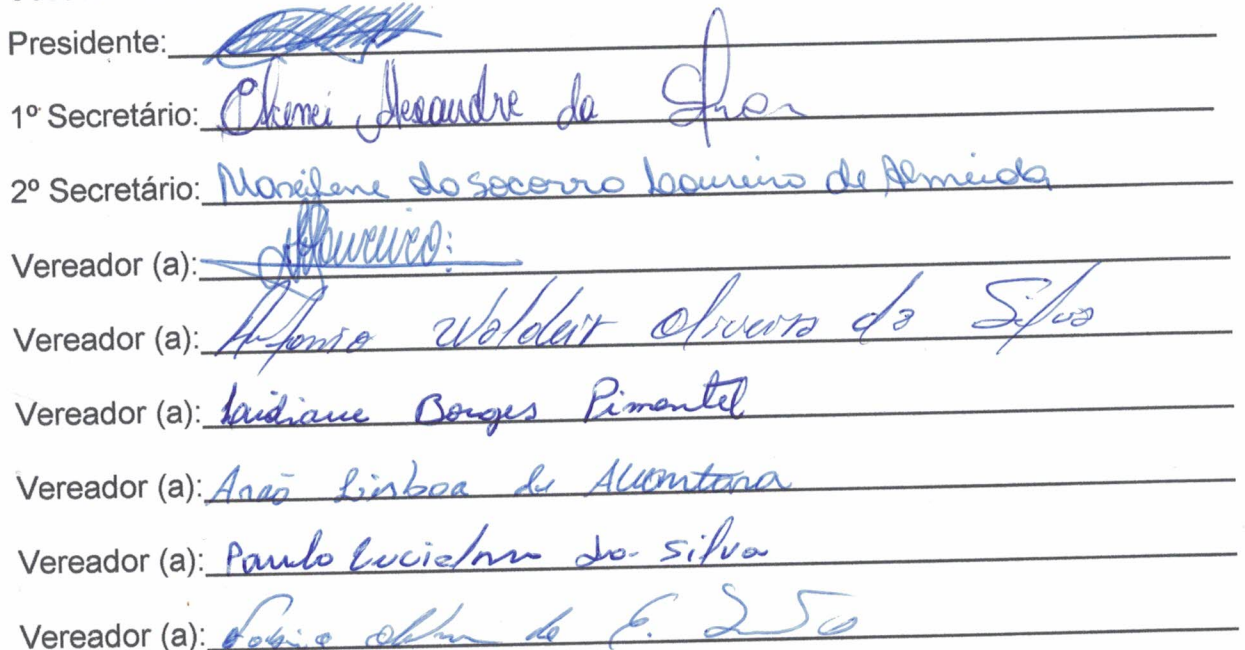 Presidente:
1º Secretário: Alexandre da Silva
2º Secretário: do Socorro Loureiro de Almeida
Vereador (a): Loureiro:
Vereador (a): Antonio Waldeir Oliveira da Silva
Vereador (a): Laidiane Borges Pimentel
Vereador (a): Arão Lisboa de Alcantara
Vereador (a): Paulo da Silva
Vereador (a): de E.